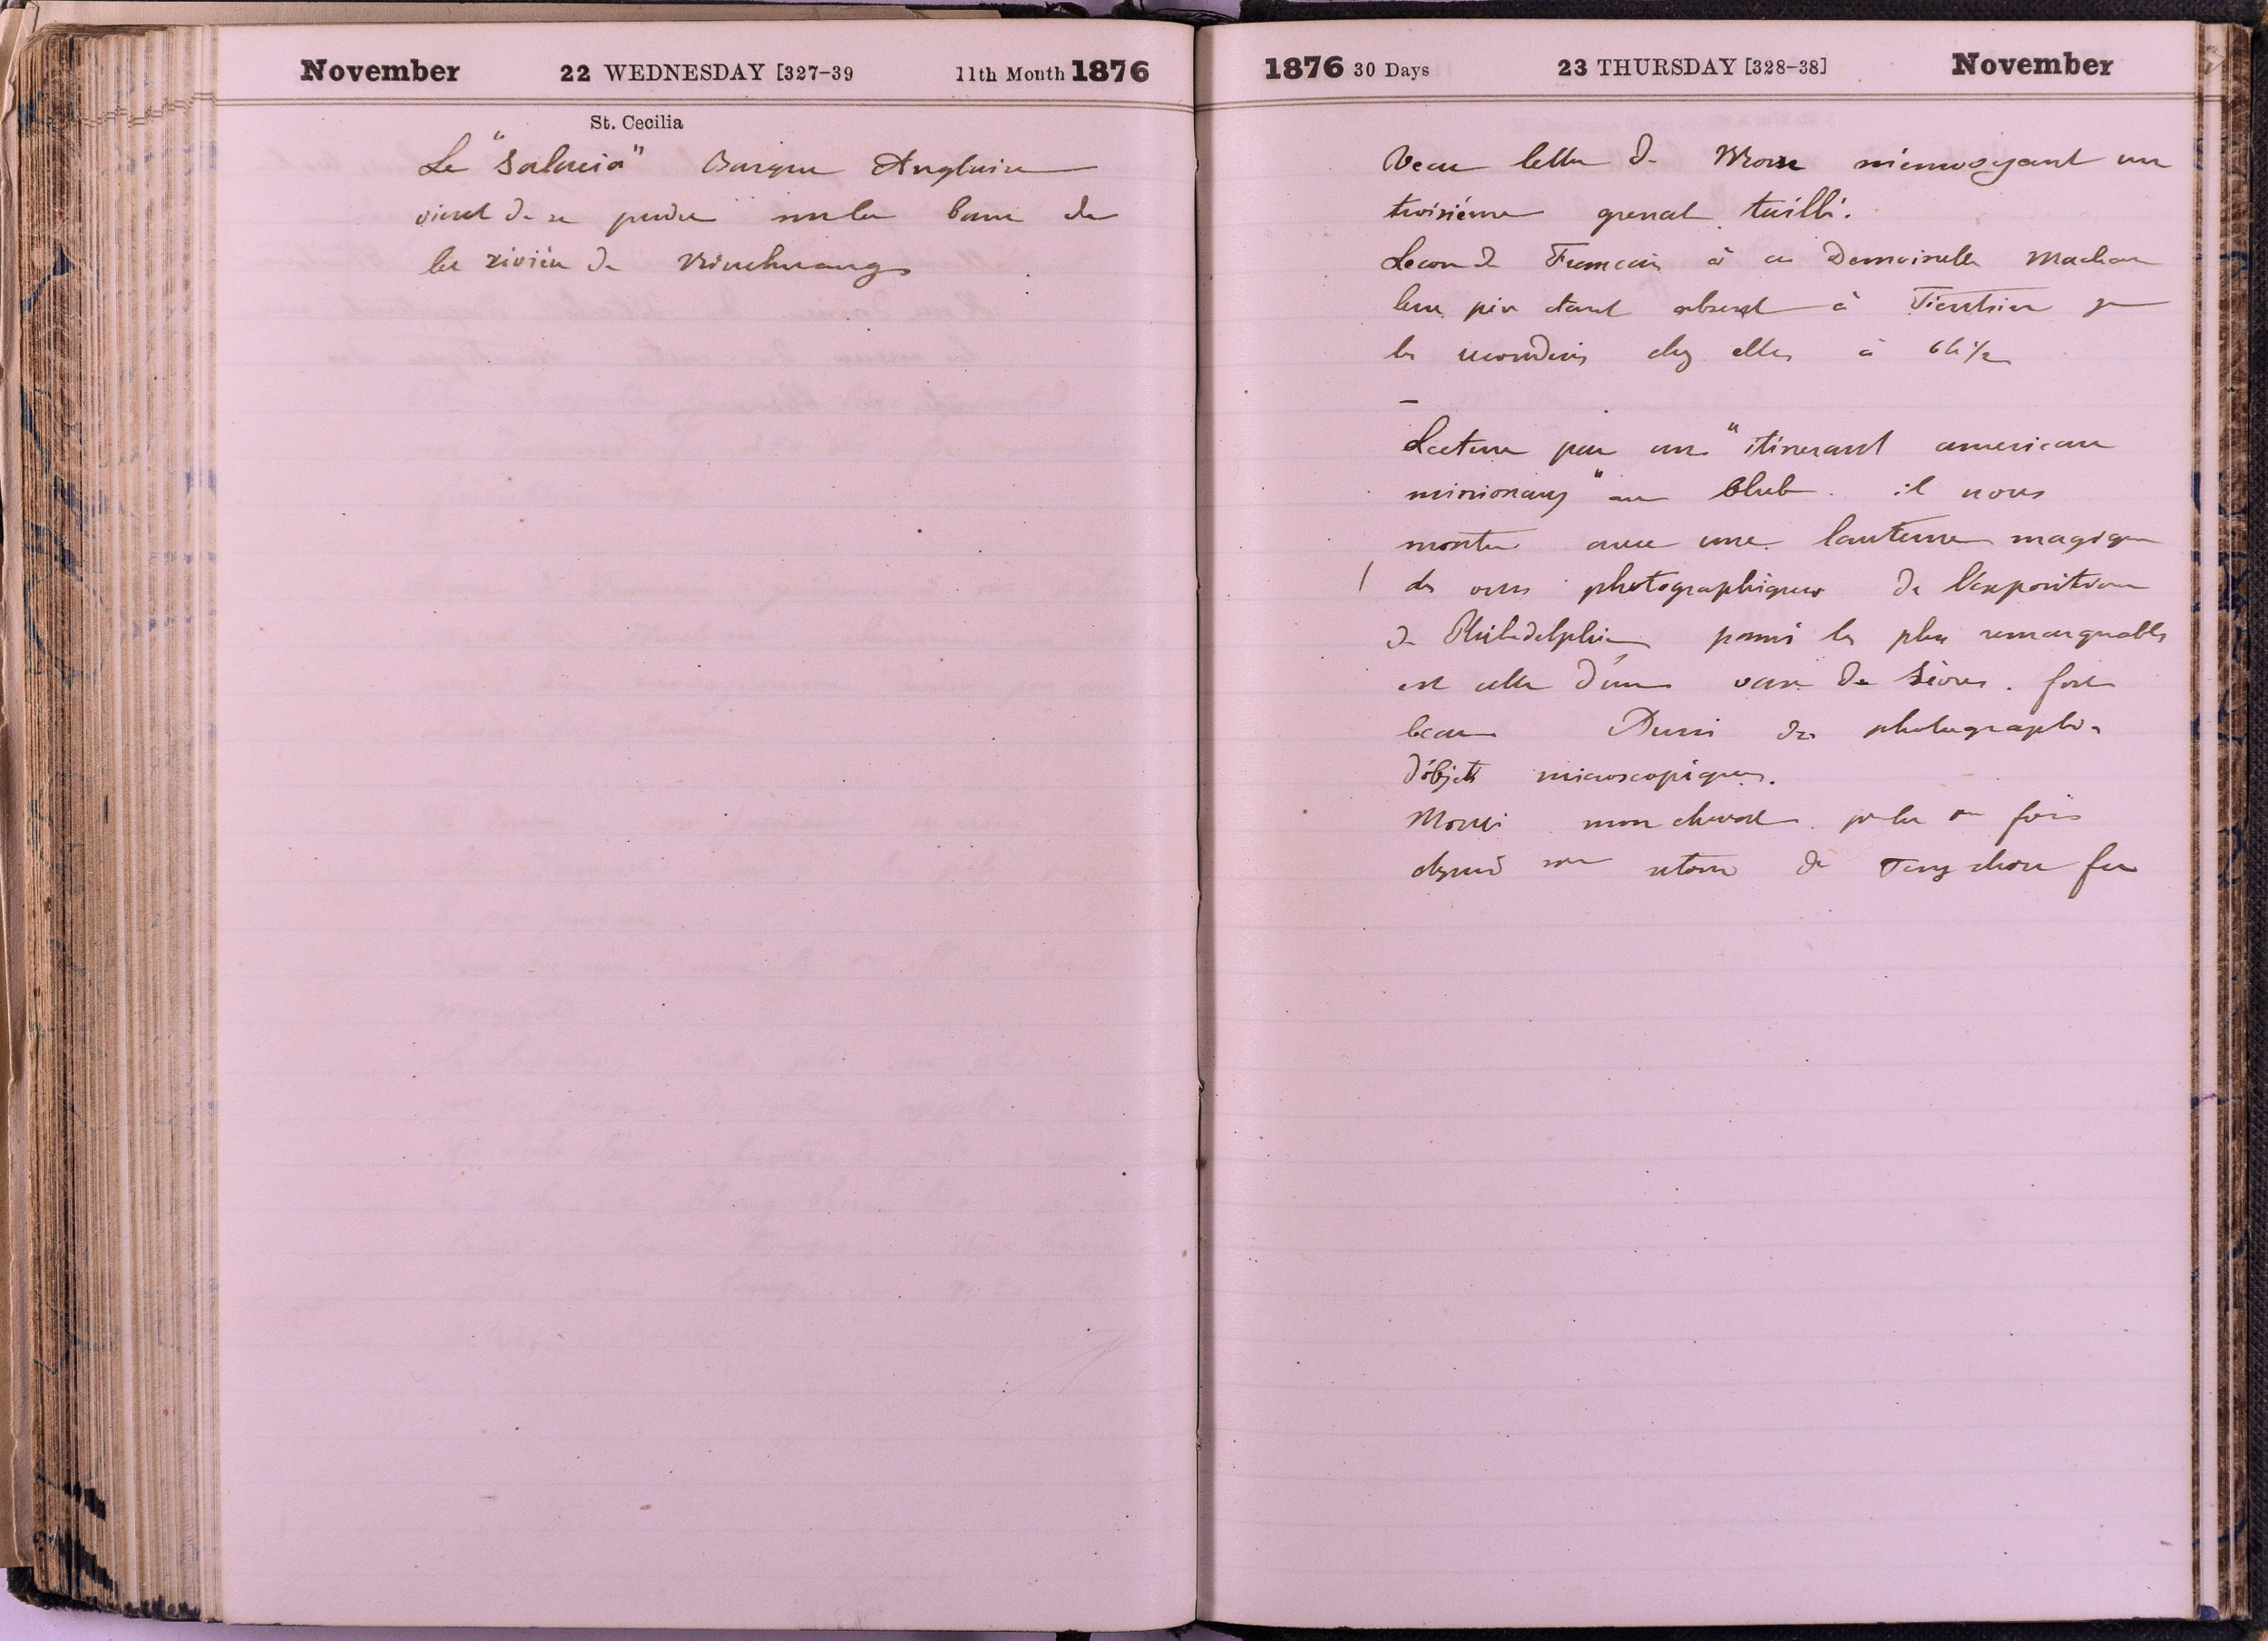 November 22 WEDNESDAY [327-39 11th Month 1876
St. Cecilia
Le "Salacia" Barque Anglaise
vient de se perdre sur la barre de
la rivière de Niuchwang
1876 30 Days 23 THURSDAY [328-38] November
Recu lettre de Morse m'envoyant un
troisième grenat taillé.
Lecon de Francais à ces Demoiselles
leur père étant absent à Tientsin je
les reconduis chez elles à 6h ½
–
Lecture par un "itinerant american
missionary" au Club. il nous
montre avec une lanterne magique
des vues photographiques de l'exposition
de Philadelphie parmi les plus remarquables
est celle d'un vase de Sèvres. fort
beau Aussi des photographies
d'objets microscopiques.
Monté mon cheval pr la 1re fois
depuis mon retour de